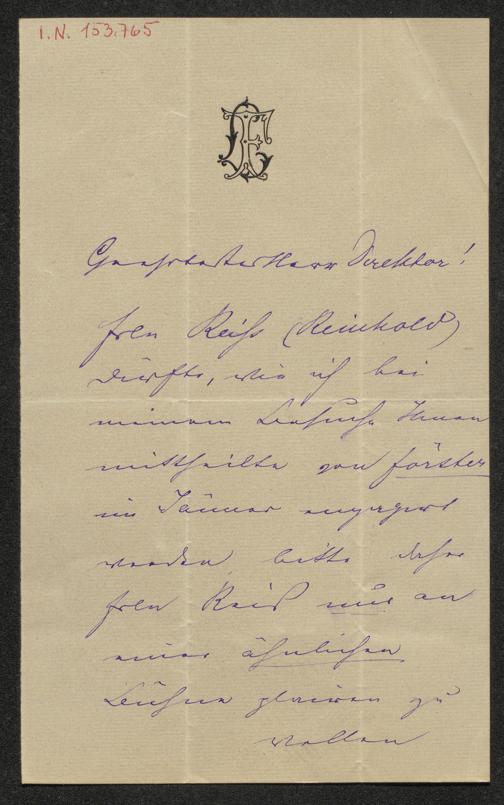 I.N. 153.765
Geehrtester Herr Direktor!
Frln Reiß (Reinhold)
dürfte, wie ich bei
meinem Besuche Ihnen
mittheilte von Förster
im Jänner engagirt
werden, bitte daher
Frln Reiß nur an
einer ähnlichen
Bühne placiren zu
wollen